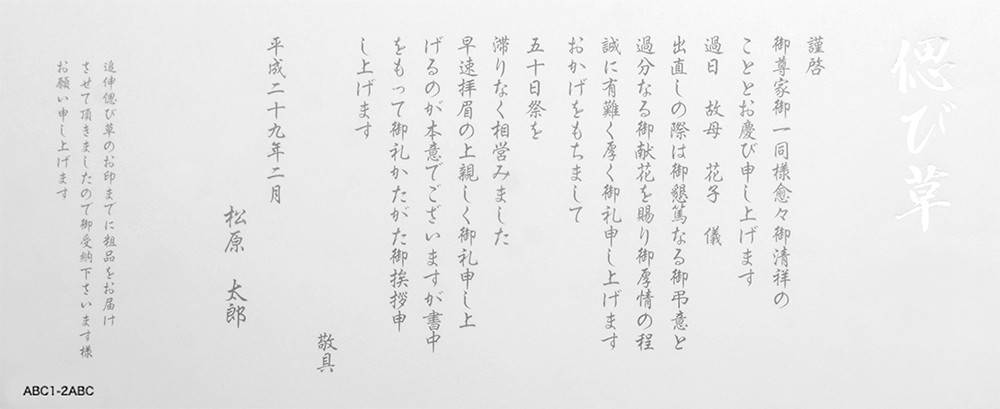 偲び草
謹啓
御尊家御一同様愈々御清祥の
こととお慶び申し上げます
過日　故母　花子　儀
出直しの際は御懇篤なる御弔意と
過分なる御献花を賜り御厚情の程
誠に有難く厚く御礼申し上げます
おかげをもちまして
五十日祭を
滞りなく相営みました
早速拝眉の上親しく御礼申し上
げるのが本意でございますが書中
をもって御礼かたがた御挨拶申
し上げます
敬具
平成二十九年二月
松原　太郎
追伸偲び草のお印までに粗品をお届け
させて頂きましたので御受納下さいます様
お願い申し上げます
ABC1-2ABC